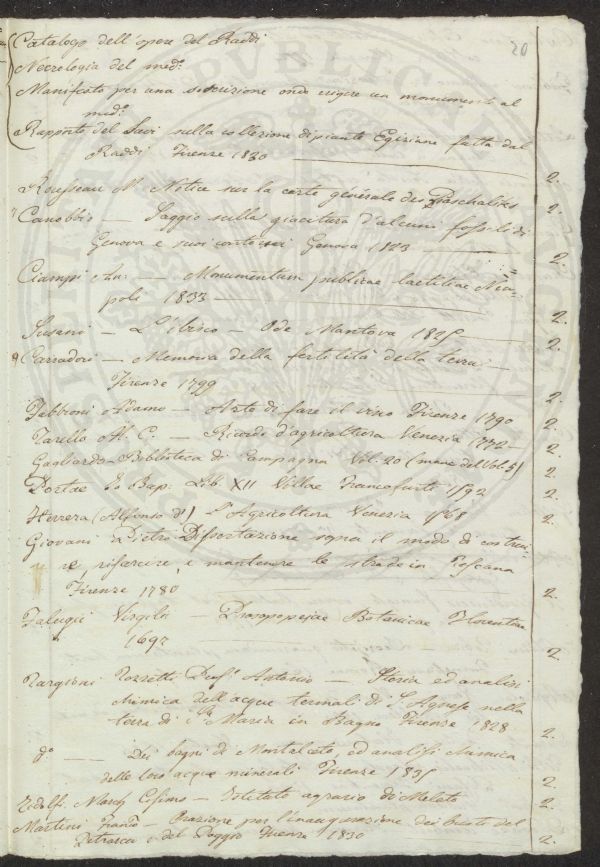 20
Catalogo dell'opere del Raddi
Necrologia del med.º
Manifesto per una soscrizione onde erigere un monumento al
med.º
Rapporto del Savi sulla collezione di piante Egiziane fatta dal
Raddi Firenze 1830
Rousseau M. Notice sur la carte générale des Paschaliks 2.
Canobbio — Saggio sulla giacitura d'alcuni fossili di 2.
Genova e suoi contorni Genova 1823 2.
Ciampi — Monumentum publicae laetitiae Nea-
poli 1833 2.
Susani — Ode Mantova 1825 2.
Carradori — Memoria della fertilità della terra —
Firenze 1799 2.
Fabbroni Adamo — Arte di fare il vino Firenze 1790 2.
Tarello M. C. — Ricordi d'agricoltura Venezia 1772 — 2.
Gagliardo — Biblioteca di Campagna Vol. 20 (manca del Vol. 5) 2.
Portae J. Bap: Lib. XII Villae Francofurti 1592 2.
Herrera (Alfonso d') L'Agricoltura Venezia 1568 2.
Giovani Pietro Dissertazione sopra il modo di costrui-
re, risarcire, e mantenere le strade in Toscana
Firenze 1780 2.
Falugi Virgilii — Prosopopejae Botanicae Florentiae
1697 2.
Targioni Tozzetti Antonio — Storia ed analisi
chimica dell'acque termali di S. Agnese nella
terra di S. Maria in Bagno Firenze 1828 2.
dº — Dei bagni di Montalceto, ed analisi chimica
delle loro acque minerali Firenze 1835 2.
Ridolfi March. Cosimo — Istituto agrario di Meleto 2.
Martini — Orazione per l'inaugurazione dei busti del
Petrarca e del Poggio Firenze 1830 2.